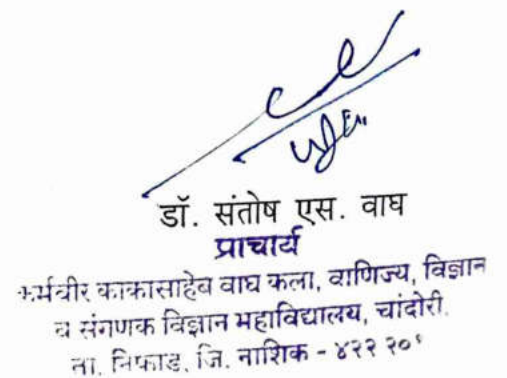 डॉ. संतोष एस. वाघ
प्राचार्य
कर्मवीर काकासाहेब वाघ कला, वाणिज्य, विज्ञान
व संगणक विज्ञान महाविद्यालय, चांदोरी.
ता. निफाड, जि. नाशिक - ४२२ २०१